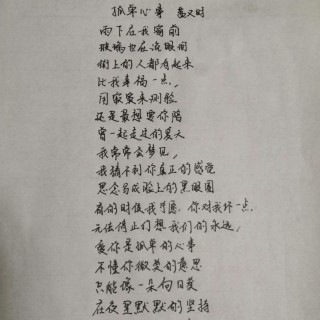 孤单心事 蓝又时
雨下在我窗前
玻璃也在流眼泪
街上的人都看起来
比我幸福一点，
用寂寞来测验
还是最想要你陪
曾一起走过的夏天
我常常会梦见，
我猜不到你真正的感受
思念写成脸上的黑眼圈
有的时候我宁愿，你对我坏一点
无法停止幻想我们的永远，
爱你是孤单的心事
不懂你微笑的意思
只能像一朵向日葵
在夜里默默的坚持